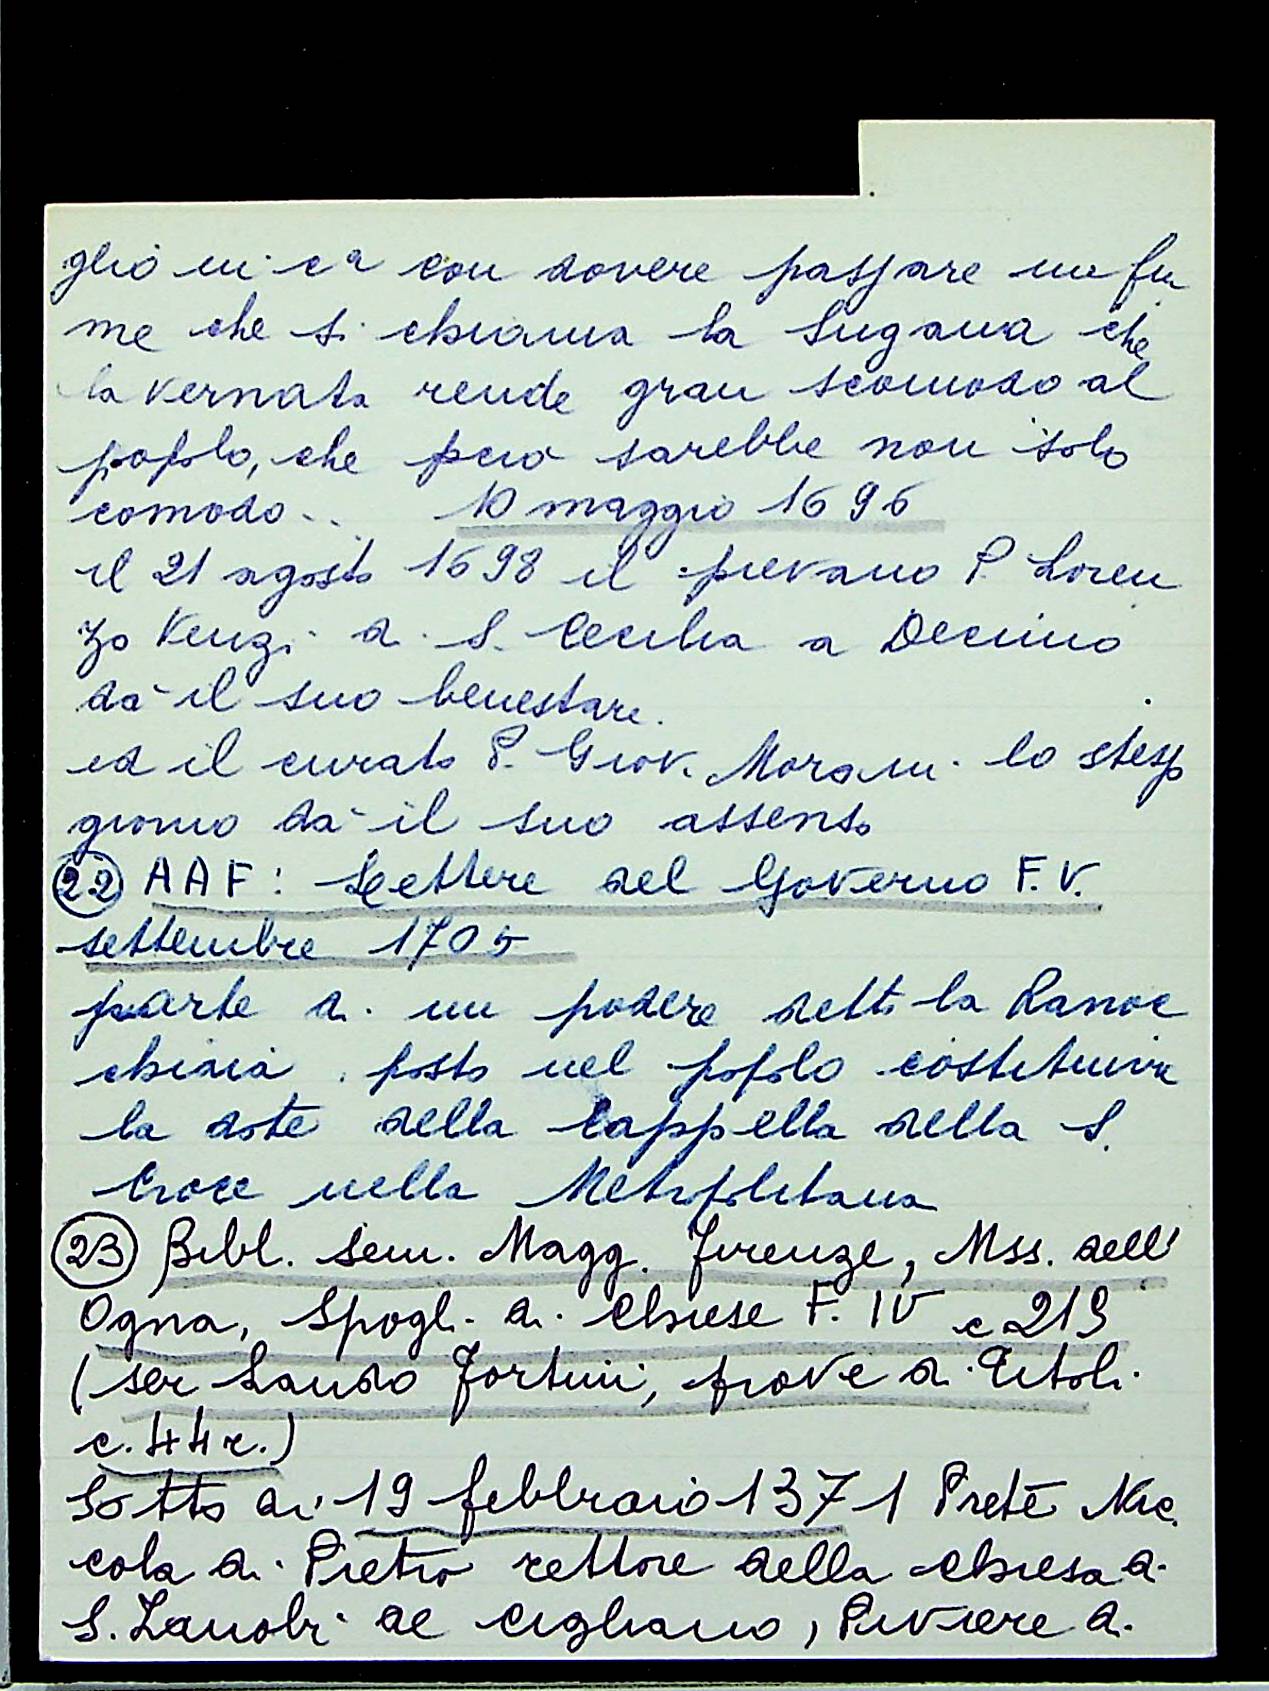 glio in ca con dovere passare un fiu
me che si chiama la Sugana che
la vernata rende gran scomodo al
popolo, che però sarebbe non solo
comodo... 10 maggio 1696
il 21 agosto 1698 il pievano P. Loren
zo di S. Cecilia a Decimo
dà il suo benestare.
ed il curato P. Giov. lo stesso
giorno dà il suo assenso
(22) AAF: Lettere del Governo F.V.
settembre 1705
parte di un podere detto la Ranoc
chiaia posto nel popolo costituiva
la dote della Cappella della S.
Croce nella Metropolitana
(23) Bibl. Sem. Magg. Firenze, Mss. dell'
Ogna, Spogli di Chiese F. IV c 219
(ser Lando Fortini, prove di
c. 44 r.)
Sotto di' 19 febbraio 1371 Prete Nic
cola di Pietro rettore della Chiesa di
S. Zanobi al Cigliano, Piviere di